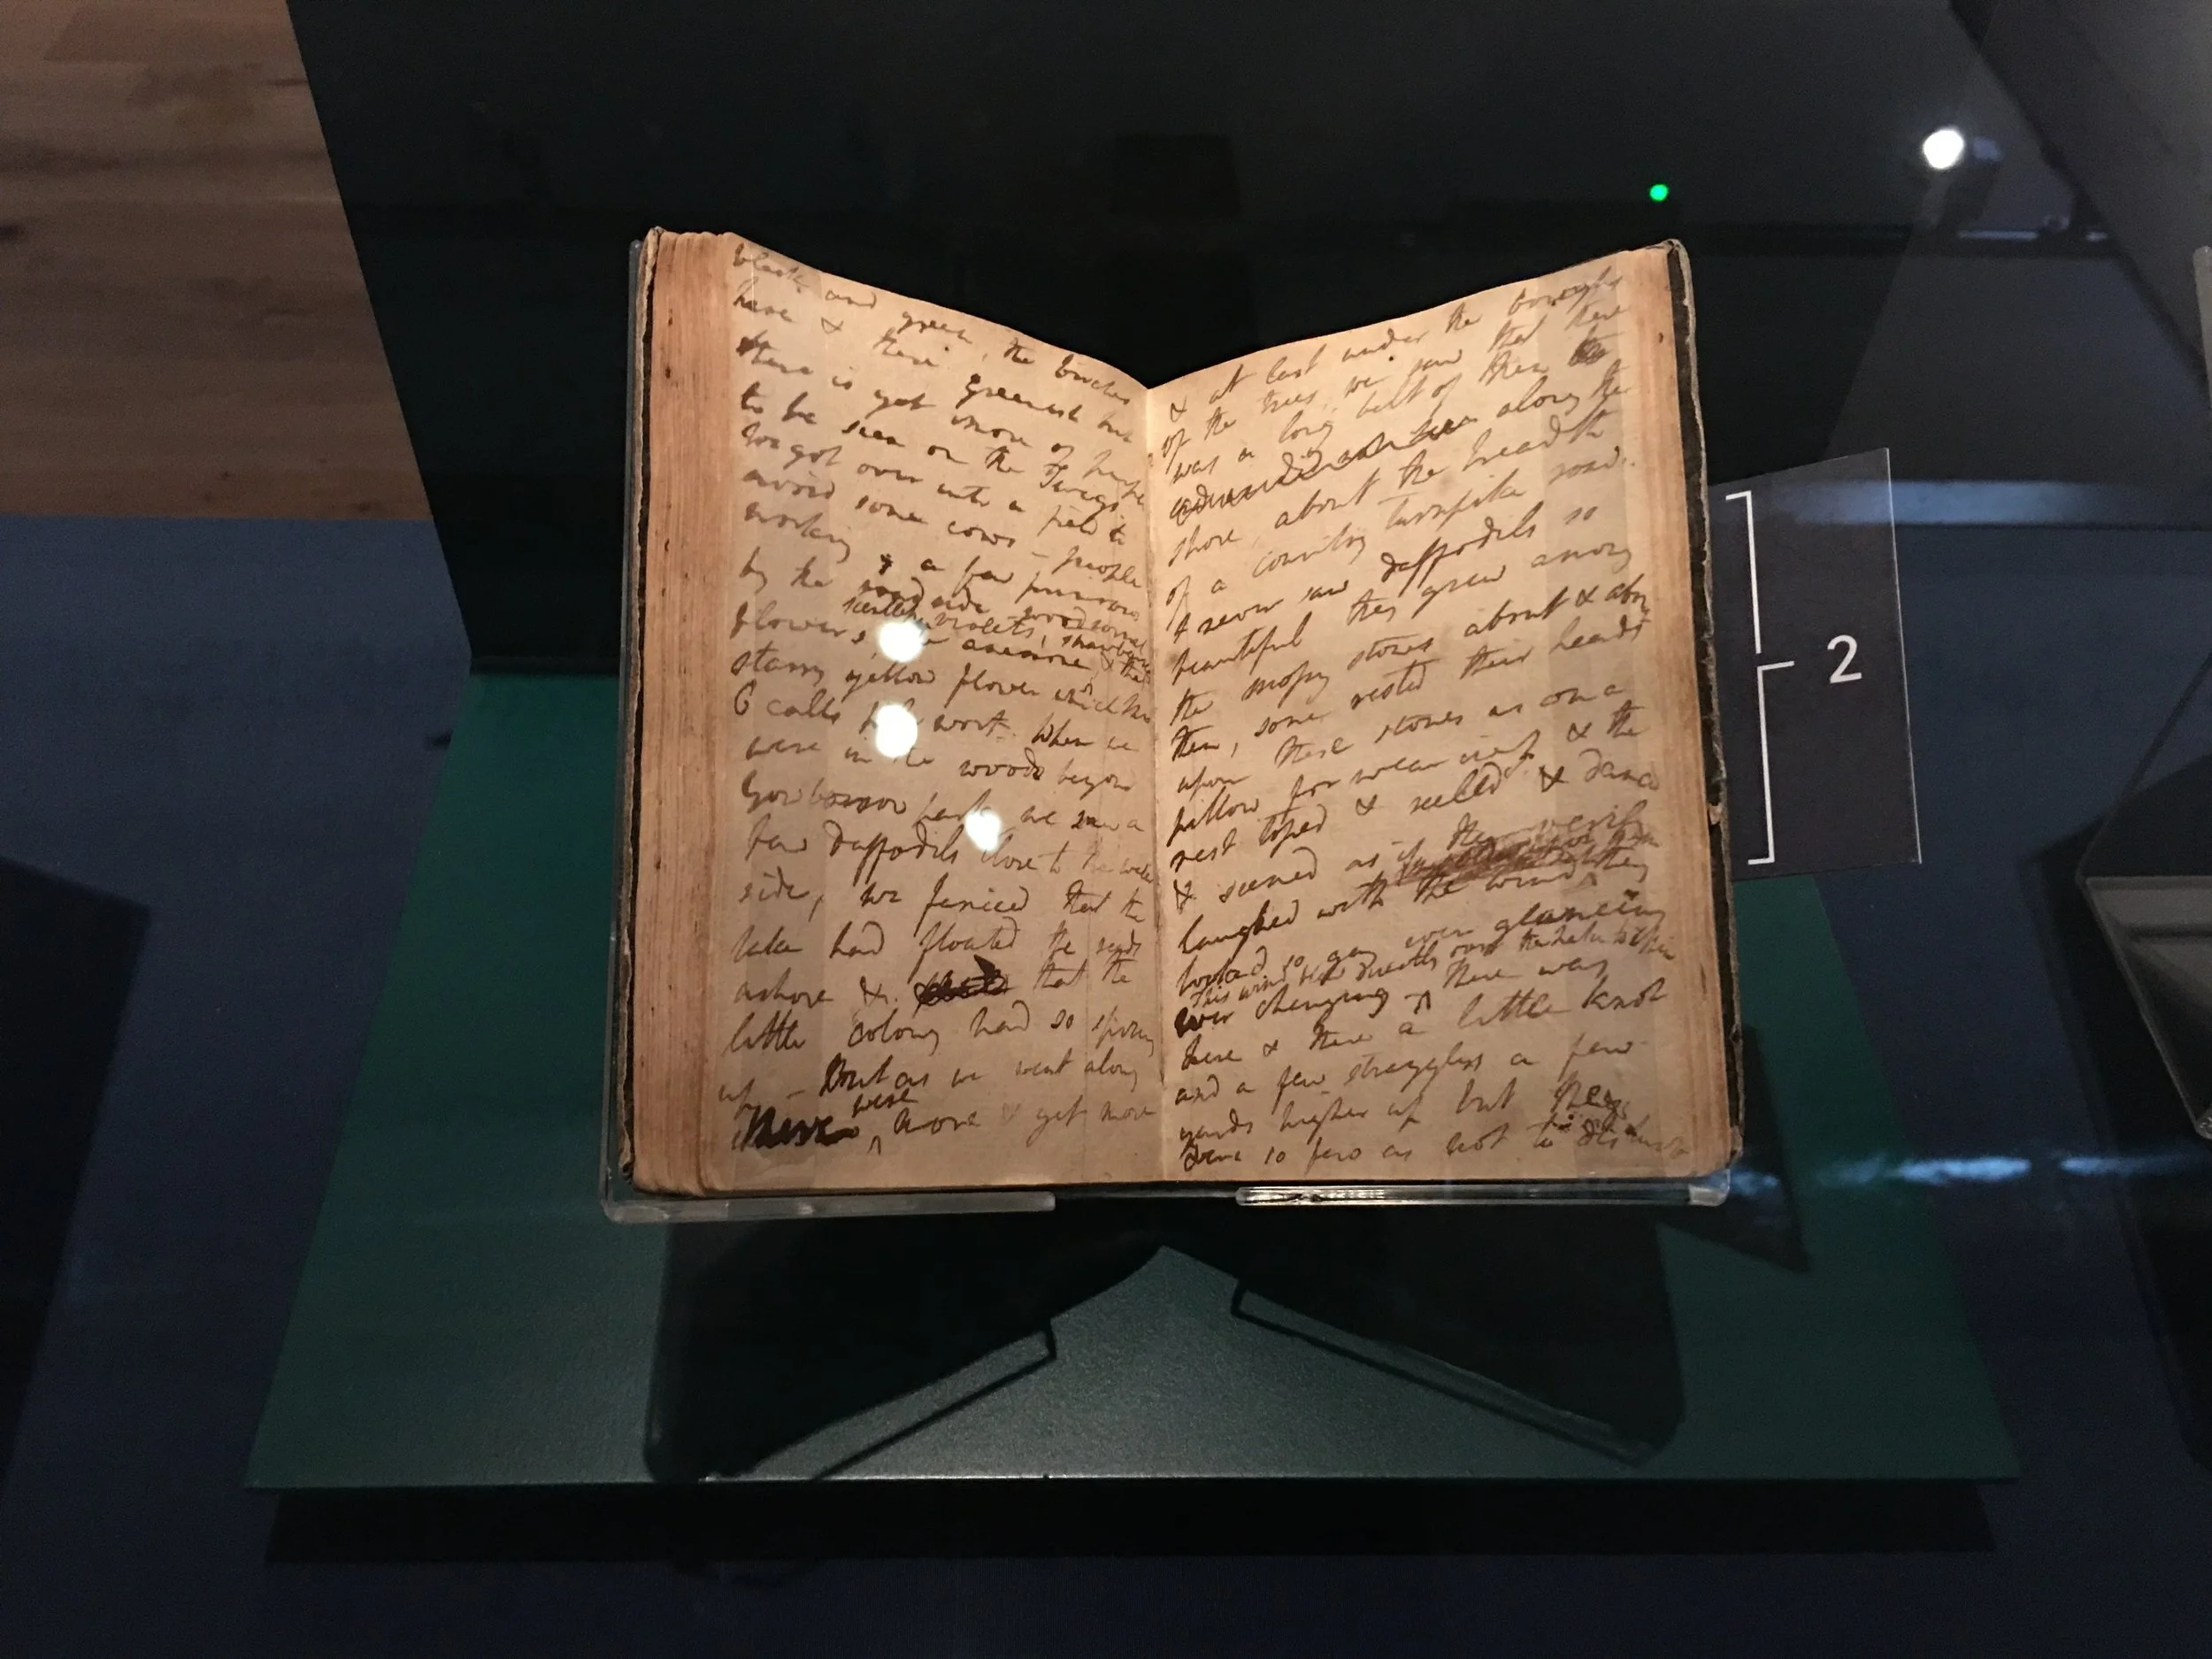 black and green, the birches
here & there greenish but
there is yet more of purple
to be seen on the Twigs.
We got over into a field to
avoid some cows — people
working, a few primroses
by the roadside, woodsorrel
scentless violets, strawberries
flowers, anemone & that
starry yellow flower which Mrs
C calls wort. When we
were in the woods beyond
Gowbarrow park we saw a
few daffodils close to the water
side, we fancied that the
lake had floated the seeds
ashore & that the
little colony had so sprung
up — But as we went along
there were more & yet more
& at last under the boughs
of the trees, we saw that there
was a long belt of them
along the
shore, about the breadth
of a country turnpike road.
I never saw daffodils so
beautiful they grew among
the mossy stones about & about
them, some rested their heads
upon these stones as on a
pillow for weariness & the
rest tossed & reeled & danced
& seemed as if they verily
laughed with the wind they
looked so gay ever glancing
This wind blew directly over the lake to them
ever changing. There was
here & there a little knot
and a few stragglers a few
yards higher up but they
were so few as not to disturb
2